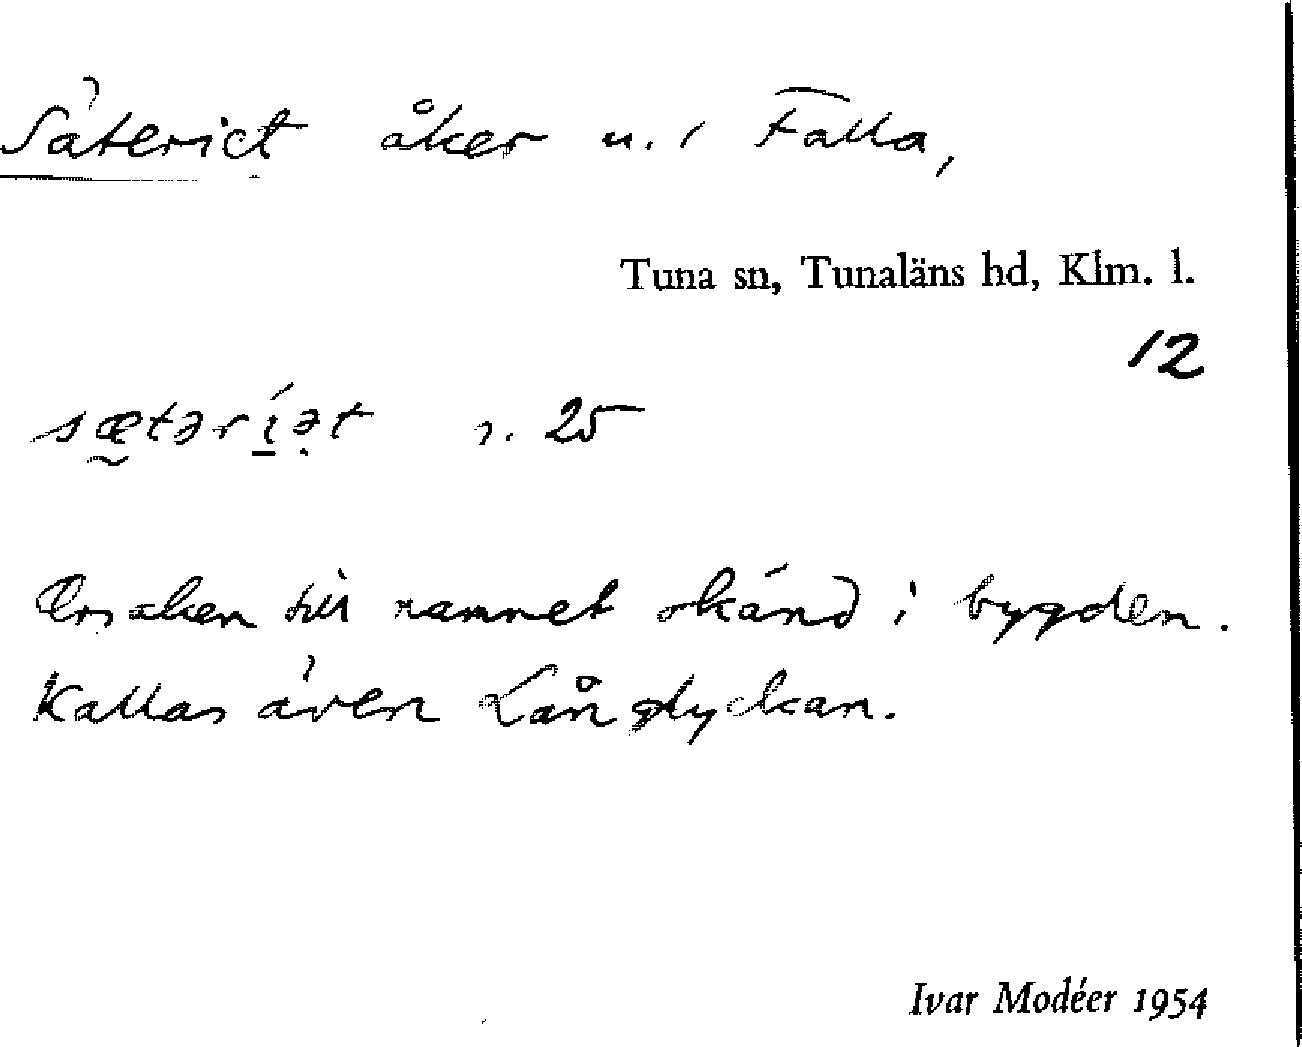 Säteriet åker n. i Falla,
Tuna sn, Tunaläns hd, Klm. l.
12
sætəríət n. 25
Orsaken till namnet okänd i bygden.
Kallas även Långlyckan.
Ivar Modéer 1954